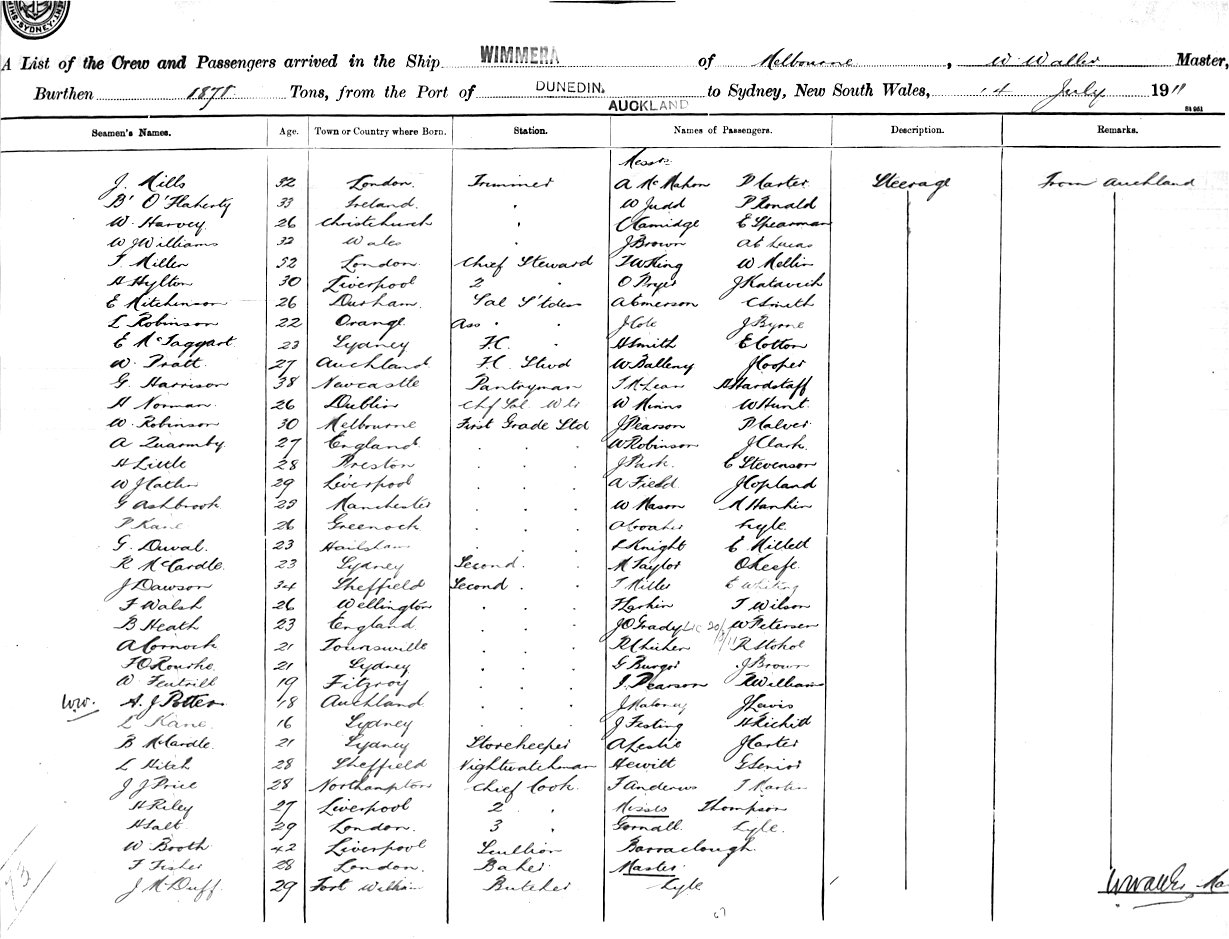 SYDNEY
A List of the Crew and Passengers arrived in the Ship WIMMERA of Melbourne, W. Waller Master,
Burthen 1871 Tons, from the Port of DUNEDIN, AUCKLAND to Sydney, New South Wales, 14 July 1911
Seamen's Names. Age. Town or Country where Born. Station. Names of Passengers. Description. Remarks.
Messrs
J. Mills 32 London. Trimmer A McMahon P Carter Steerage From Auckland
B' O'Flaherty 33 Ireland. " W Judd P Ronald
W. Harvey. 26 Christchurch " C Camidge E Spearman
W J Williams 32 Wales J Brown A E Lucas
T. Miller 52 London. Chief Steward T W King W Mellin
H Hylton 30 Liverpool 2 " O Pryer J Katavich
E Hitchinson 26 Durham. Sal S'tdes A Emerson C Smith
L Robinson 22 Orange Ass " " J Cole J Byrne
E McTaggart 23 Sydney F.C. " H Smith E Cotton
W. Pratt. 27 Auckland F.C. Stwd W Balleny J Cooper
G. Harrison 38 Newcastle Pantryman T McLean A Hardstaff
H Norman 26 Dublin Chf Sal Wtr W Minns W Hunt
W. Robinson 30 Melbourne First Grade Std J Pearson P Calver
A Quarmby 27 England " " " W Robinson J Clark
H Little 28 Preston " " " J Park. E Stevenson
W J 29 Liverpool " " " A Field J Copland
G Ashbrook 23 Manchester " " " W Mason
P Kane 26 Greenock " " " Lyle
G. Duval. 23 Hailsham " " " L Knight E Millett
R McCardle 23 Sydney Second " " M Taylor O'Keefe
J Dawson 34 Sheffield Second " " T Miller E Whiting
F Walsh 26 Wellington " " " F Larkin T Wilson
B Heath 23 England " " " J O'Grady W Petersen
A Cornock 21 Townsville " " "
T O'Rourke 21 Sydney " " " J Brown
W 19 Fitzroy " " " J. Pearson R William
W.W. A. J Potter 18 Auckland " " " J Maloney J Lewis
L Kane 16 Sydney " " " J Festing
B McCardle 21 Sydney Storekeeper A Leslie J Carter
L Hitch 28 Sheffield Nightwatchman Hewitt G Senior
J J Price 28 Northampton Chief Cook. T Andrews T Martin
H Riley 27 Liverpool 2 " Misses Thompson
H Salt 29 London. 3 " Gornall Lyle.
W Booth 42 Liverpool Scullion Barraclough.
F Fisher 28 London. Baker Master
J McDuff 29 Fort William Butcher Lyle W Waller Ma
67